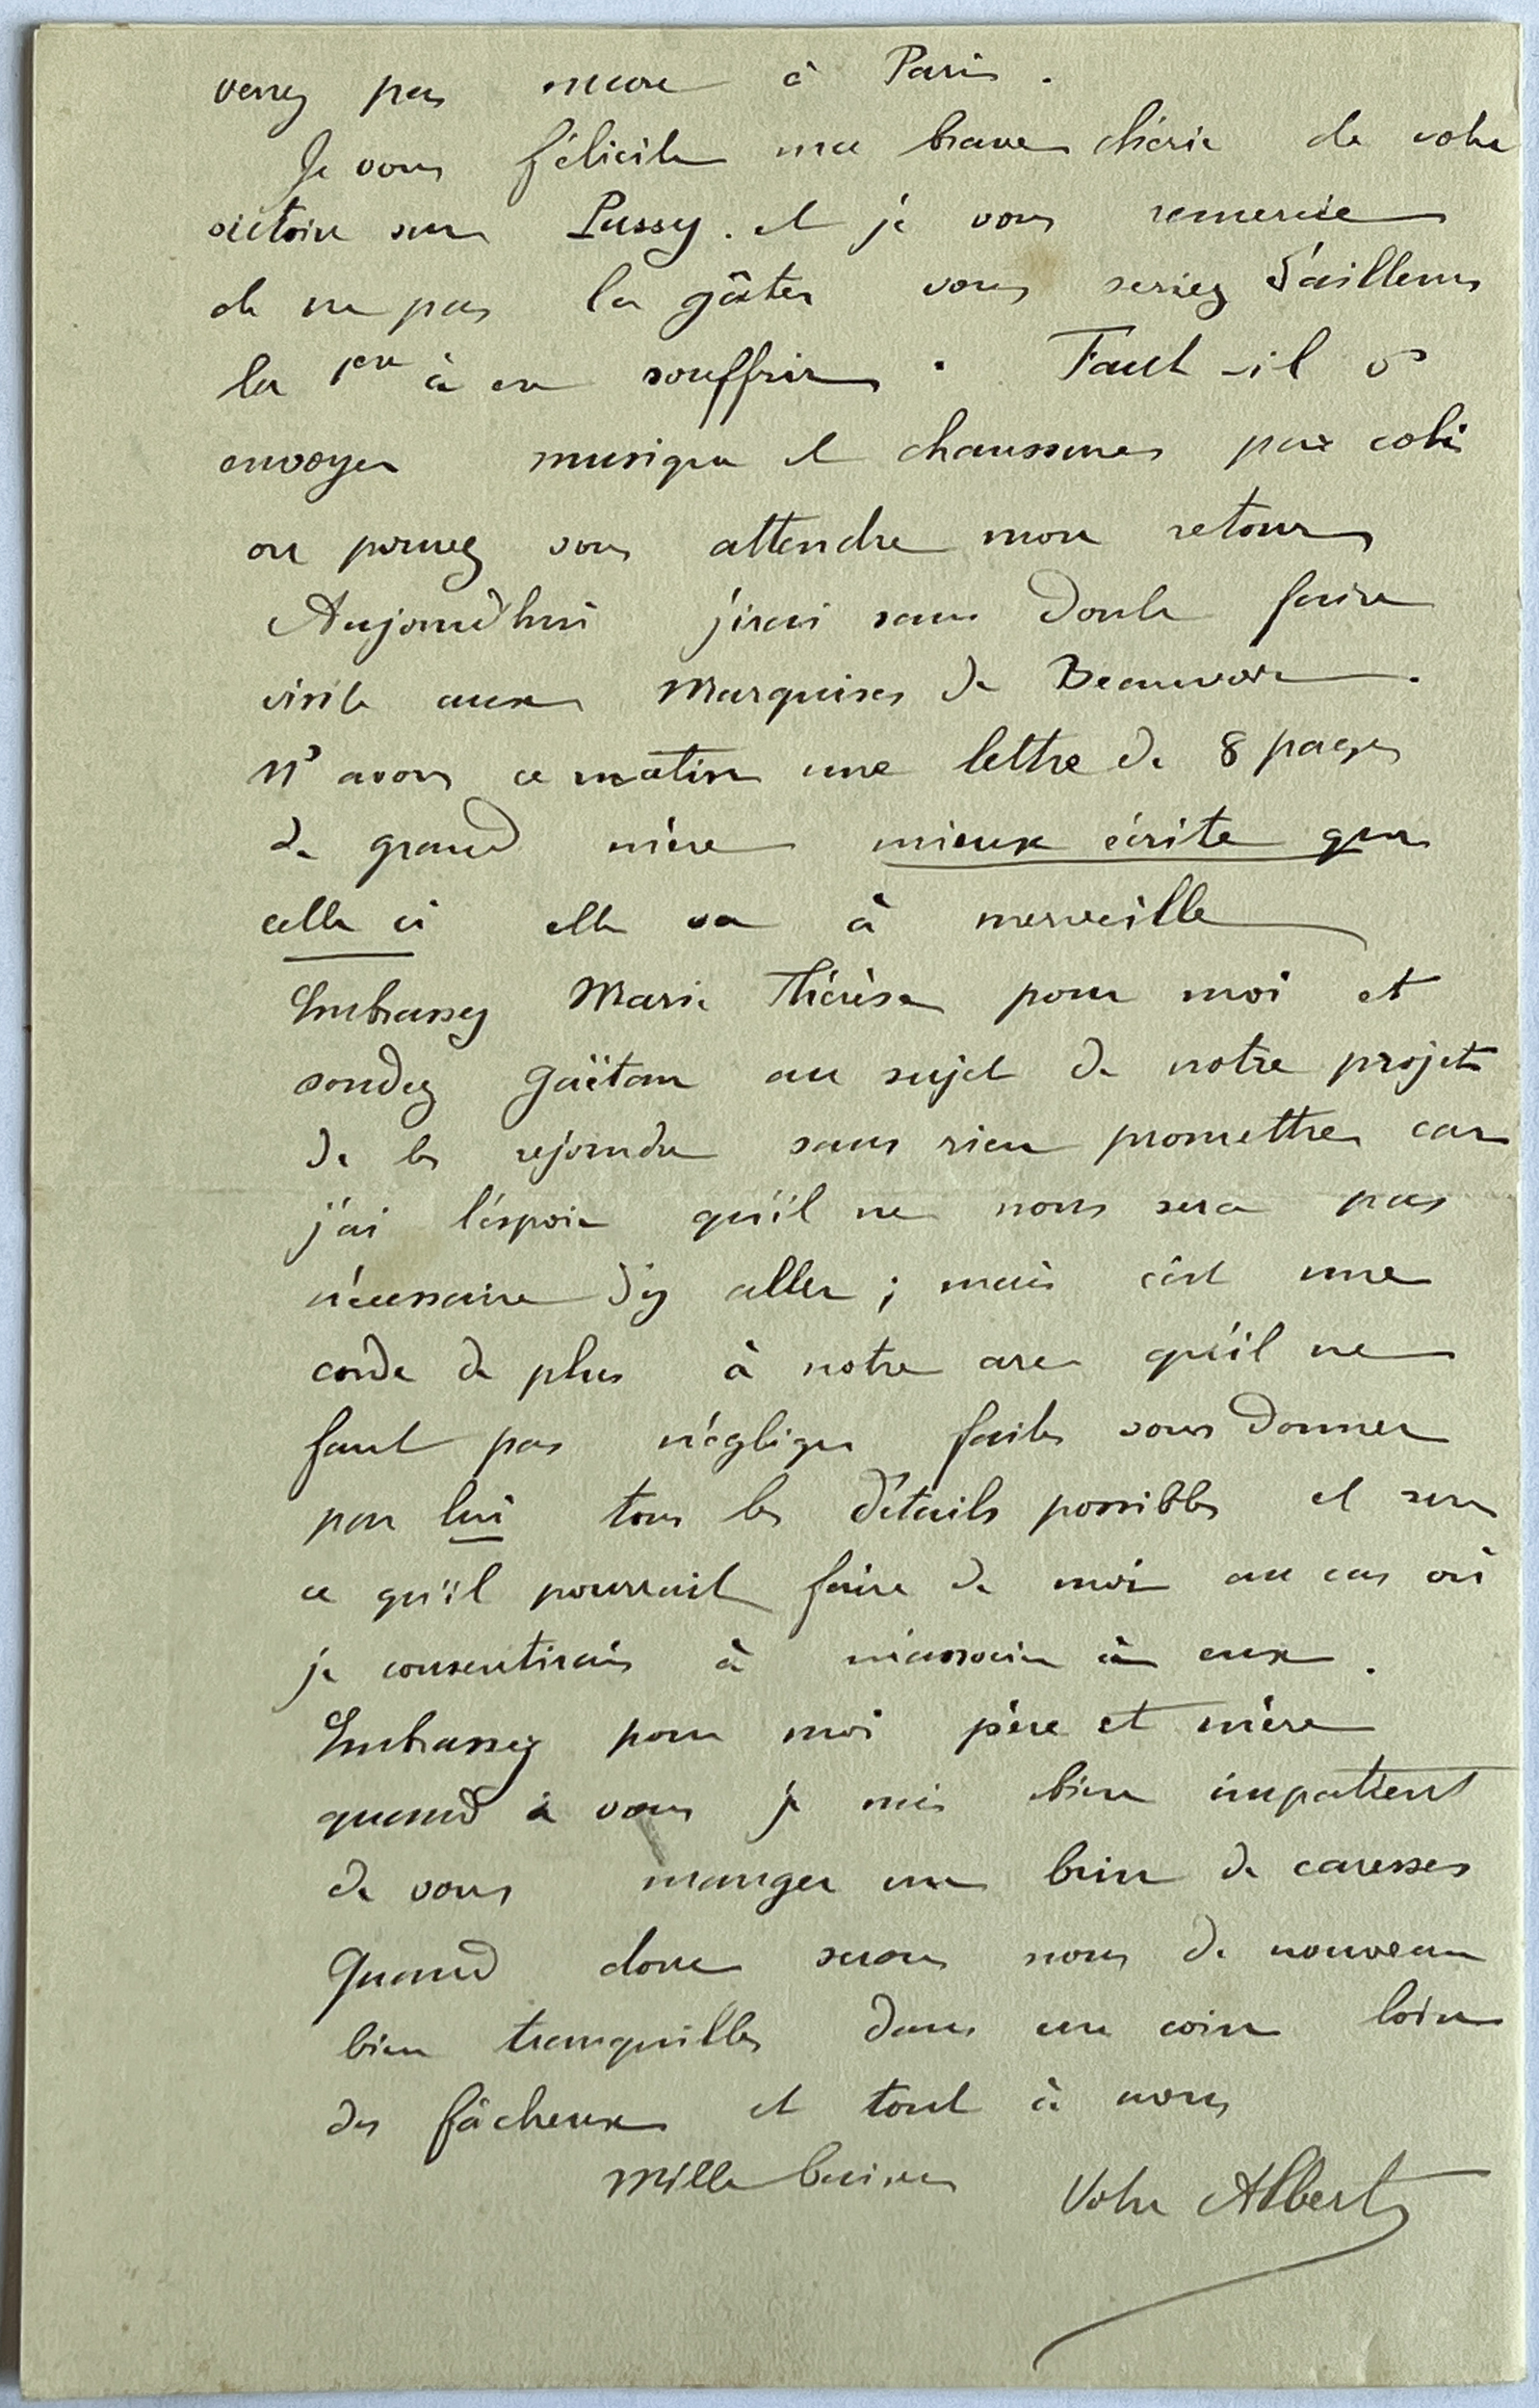 venez pas encore à Paris.
Je vous félicite ma brave chérie de votre
victoire sur Pussy. et je vous remercie
de ne pas la gâter vous seriez d'ailleurs
la 1ere à en souffrir. Faut-il
envoyer musique et chaussures par colis
ou pouvez vous attendre mon retour
Aujourd'hui j'irai sans doute faire
visite aux Marquises de Beauvoir.
Ns avons ce matin une lettre de 8 pages
de grand mère mieux écrite que
celle ci elle va à merveille
Embrassez Marie Thérèse pour moi et
sondez Gaëtan au sujet de notre projet
de les rejoindre sans rien promettre car
j'ai l'espoir qu'il ne nous sera pas
nécessaire d'y aller ; mais c'est une
corde de plus à notre arc qu'il ne
faut pas négliger faites vous donner
par lui tous les détails possibles et sur
ce qu'il pourrait faire de moi au cas où
je consentirais à m'associer à eux.
Embrassez pour moi père et mère
quand à vous je suis bien impatient
de vous manger un brin de caresses
Quand donc serons nous de nouveau
bien tranquilles dans un coin loin
des fâcheux et tout à nous
Mille baisers Votre Albert